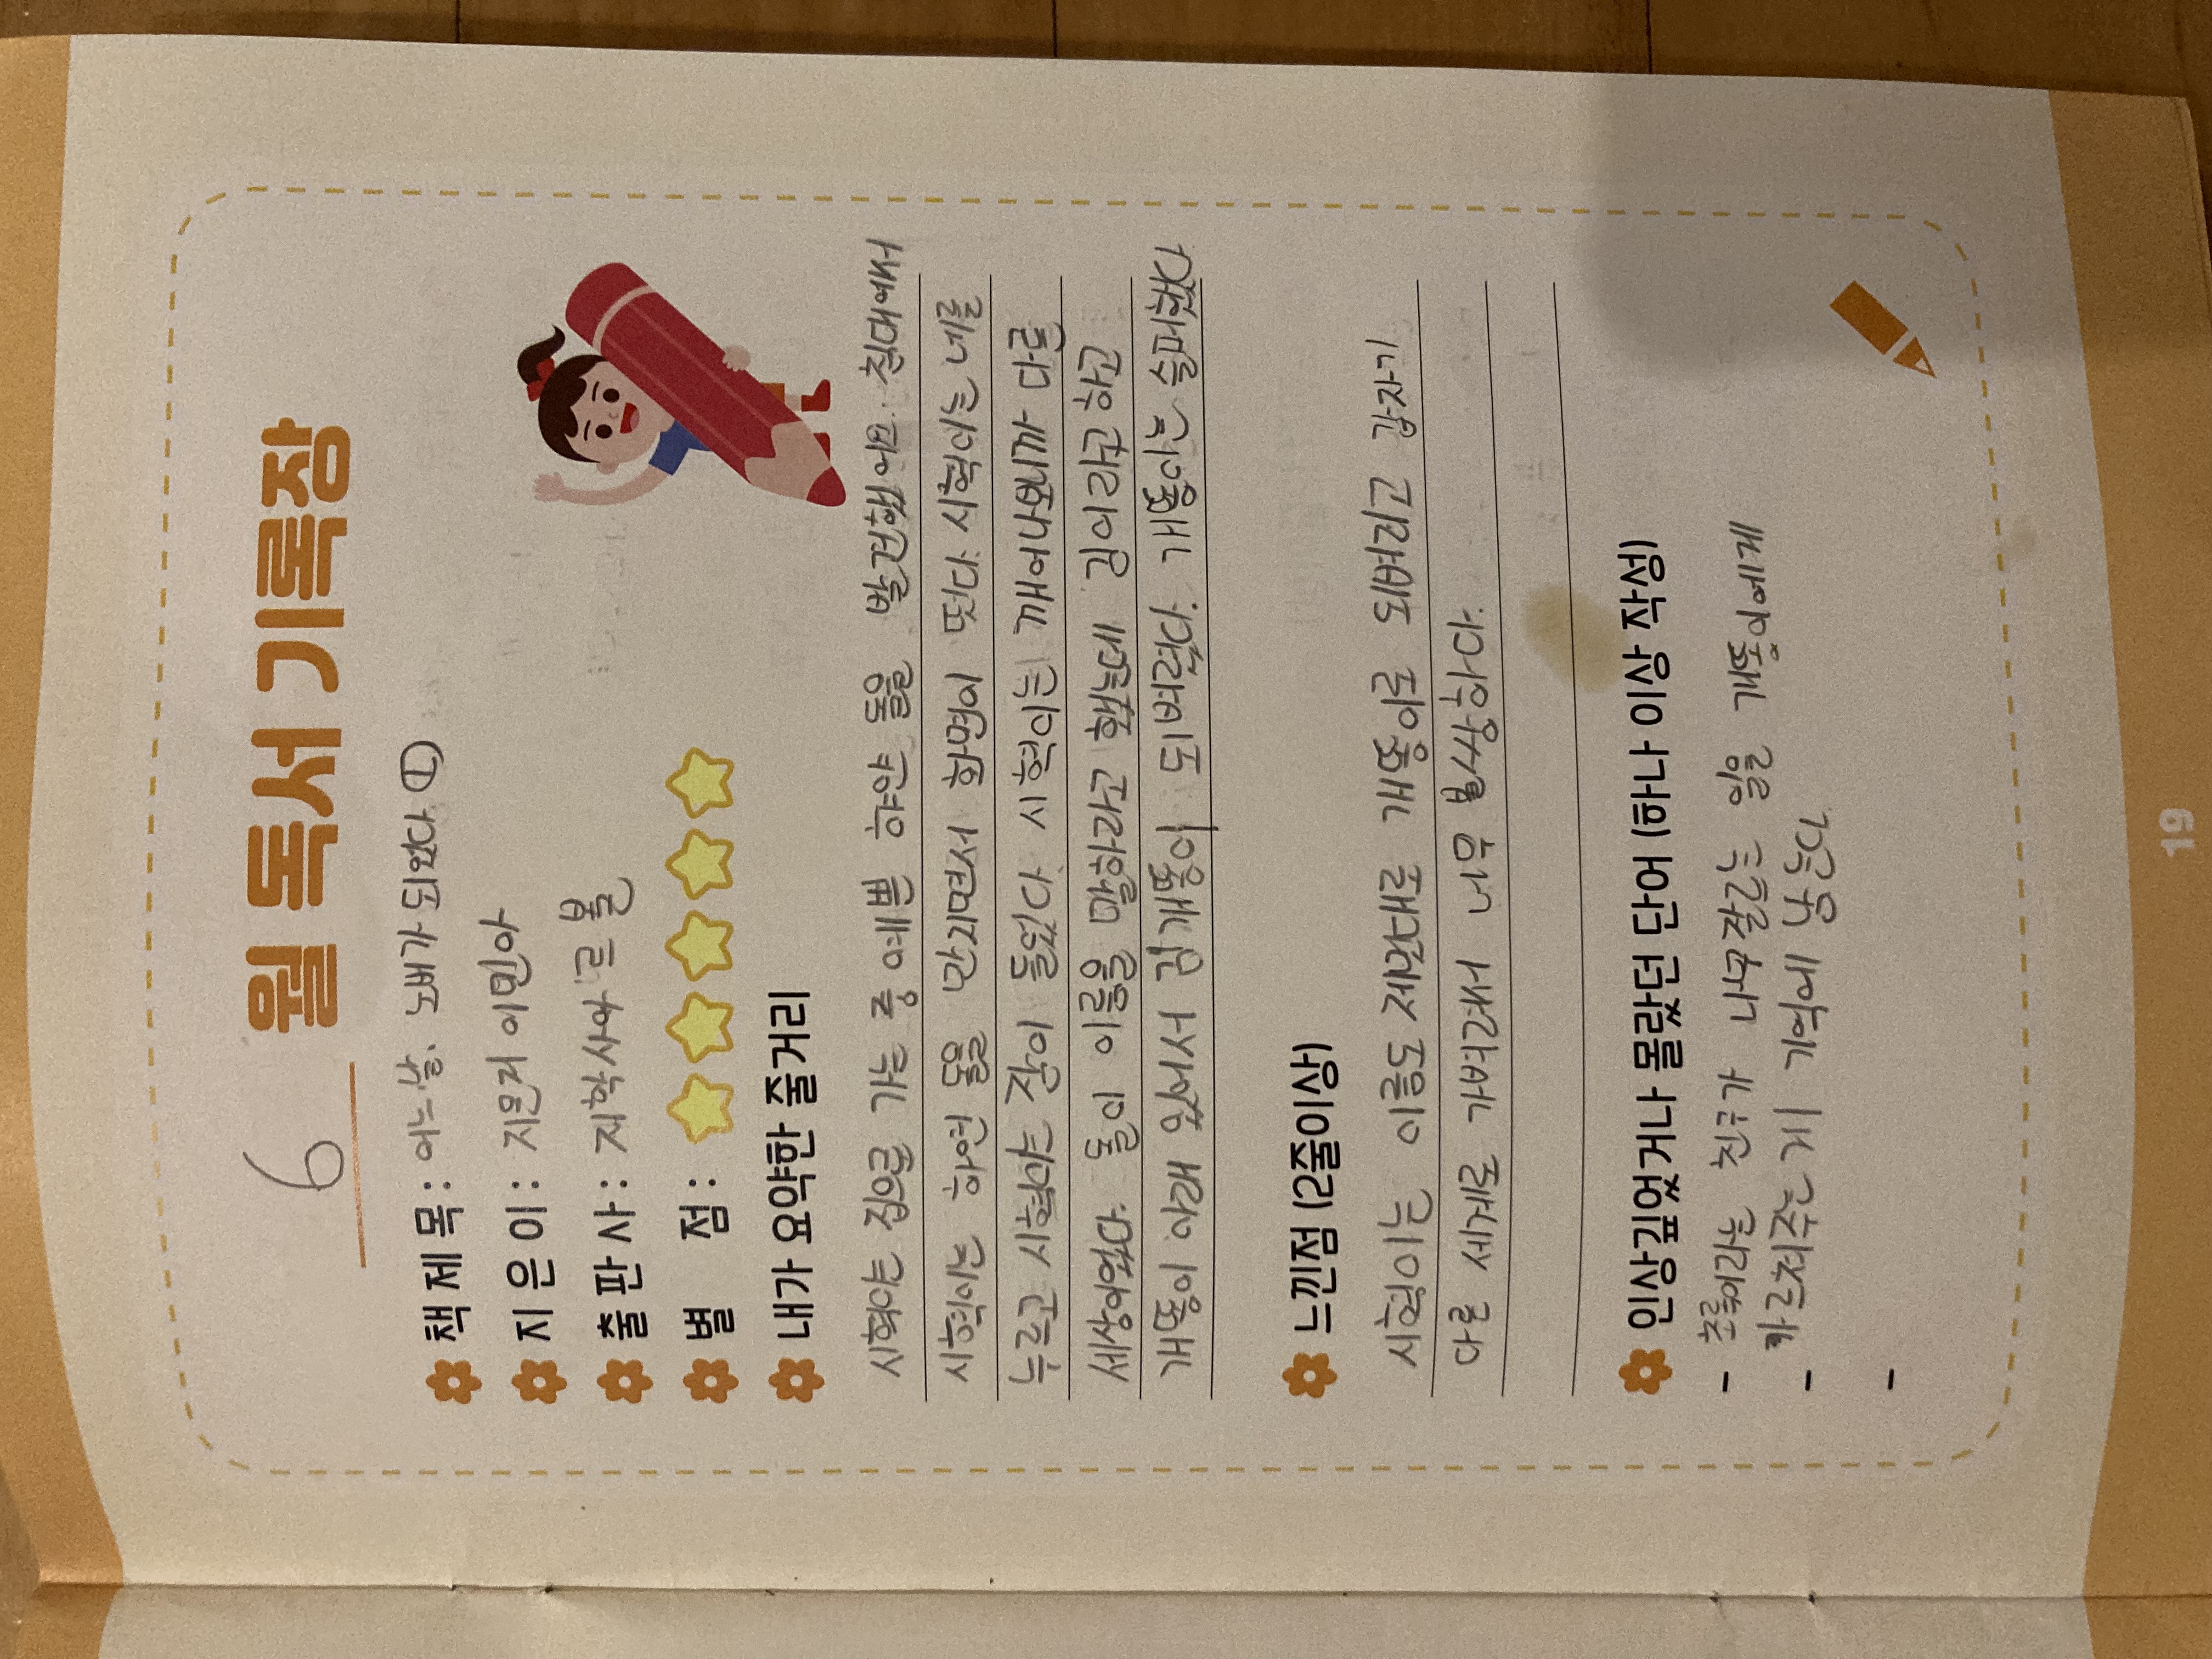 6 월 독서 기록장
책 제 목 : 어느날, 노비가 되었다 ①
지 은 이 : 지은지 이민아
출 판 사 : 지학사아르볼
별 점 :
내가 요약한 줄거리
시혁이는 집으로 가는 중 예쁜 하얀 돌을 발견했어요. 침대에서
시혁이는 하연 돌을 만지면서 화면이 떳다. 시혁이는 네를
누르고 시혁이는 잠이 들었다. 시혁이는 깨어나보니까 다른
세상이었다. 돌이 이름을 말하라고 했는데 김이라고 하고
개똥이 아래 있어서 김개똥이 되버렸다. 개똥이는 슬퍼했다
느낀점 (2줄이상)
시혁이는 이름도 제간대로 개똥이로 되버리고 갑자기
다른 세계로 가버려서 너무 불쌍하다.
인상깊었거나 몰랐던 단어 (하나 이상 작성)
- 초록이라는 친구가 나무자르는 일을 개똥이에게
- 카르쳐주는 게 기억에 남는다.
-
19